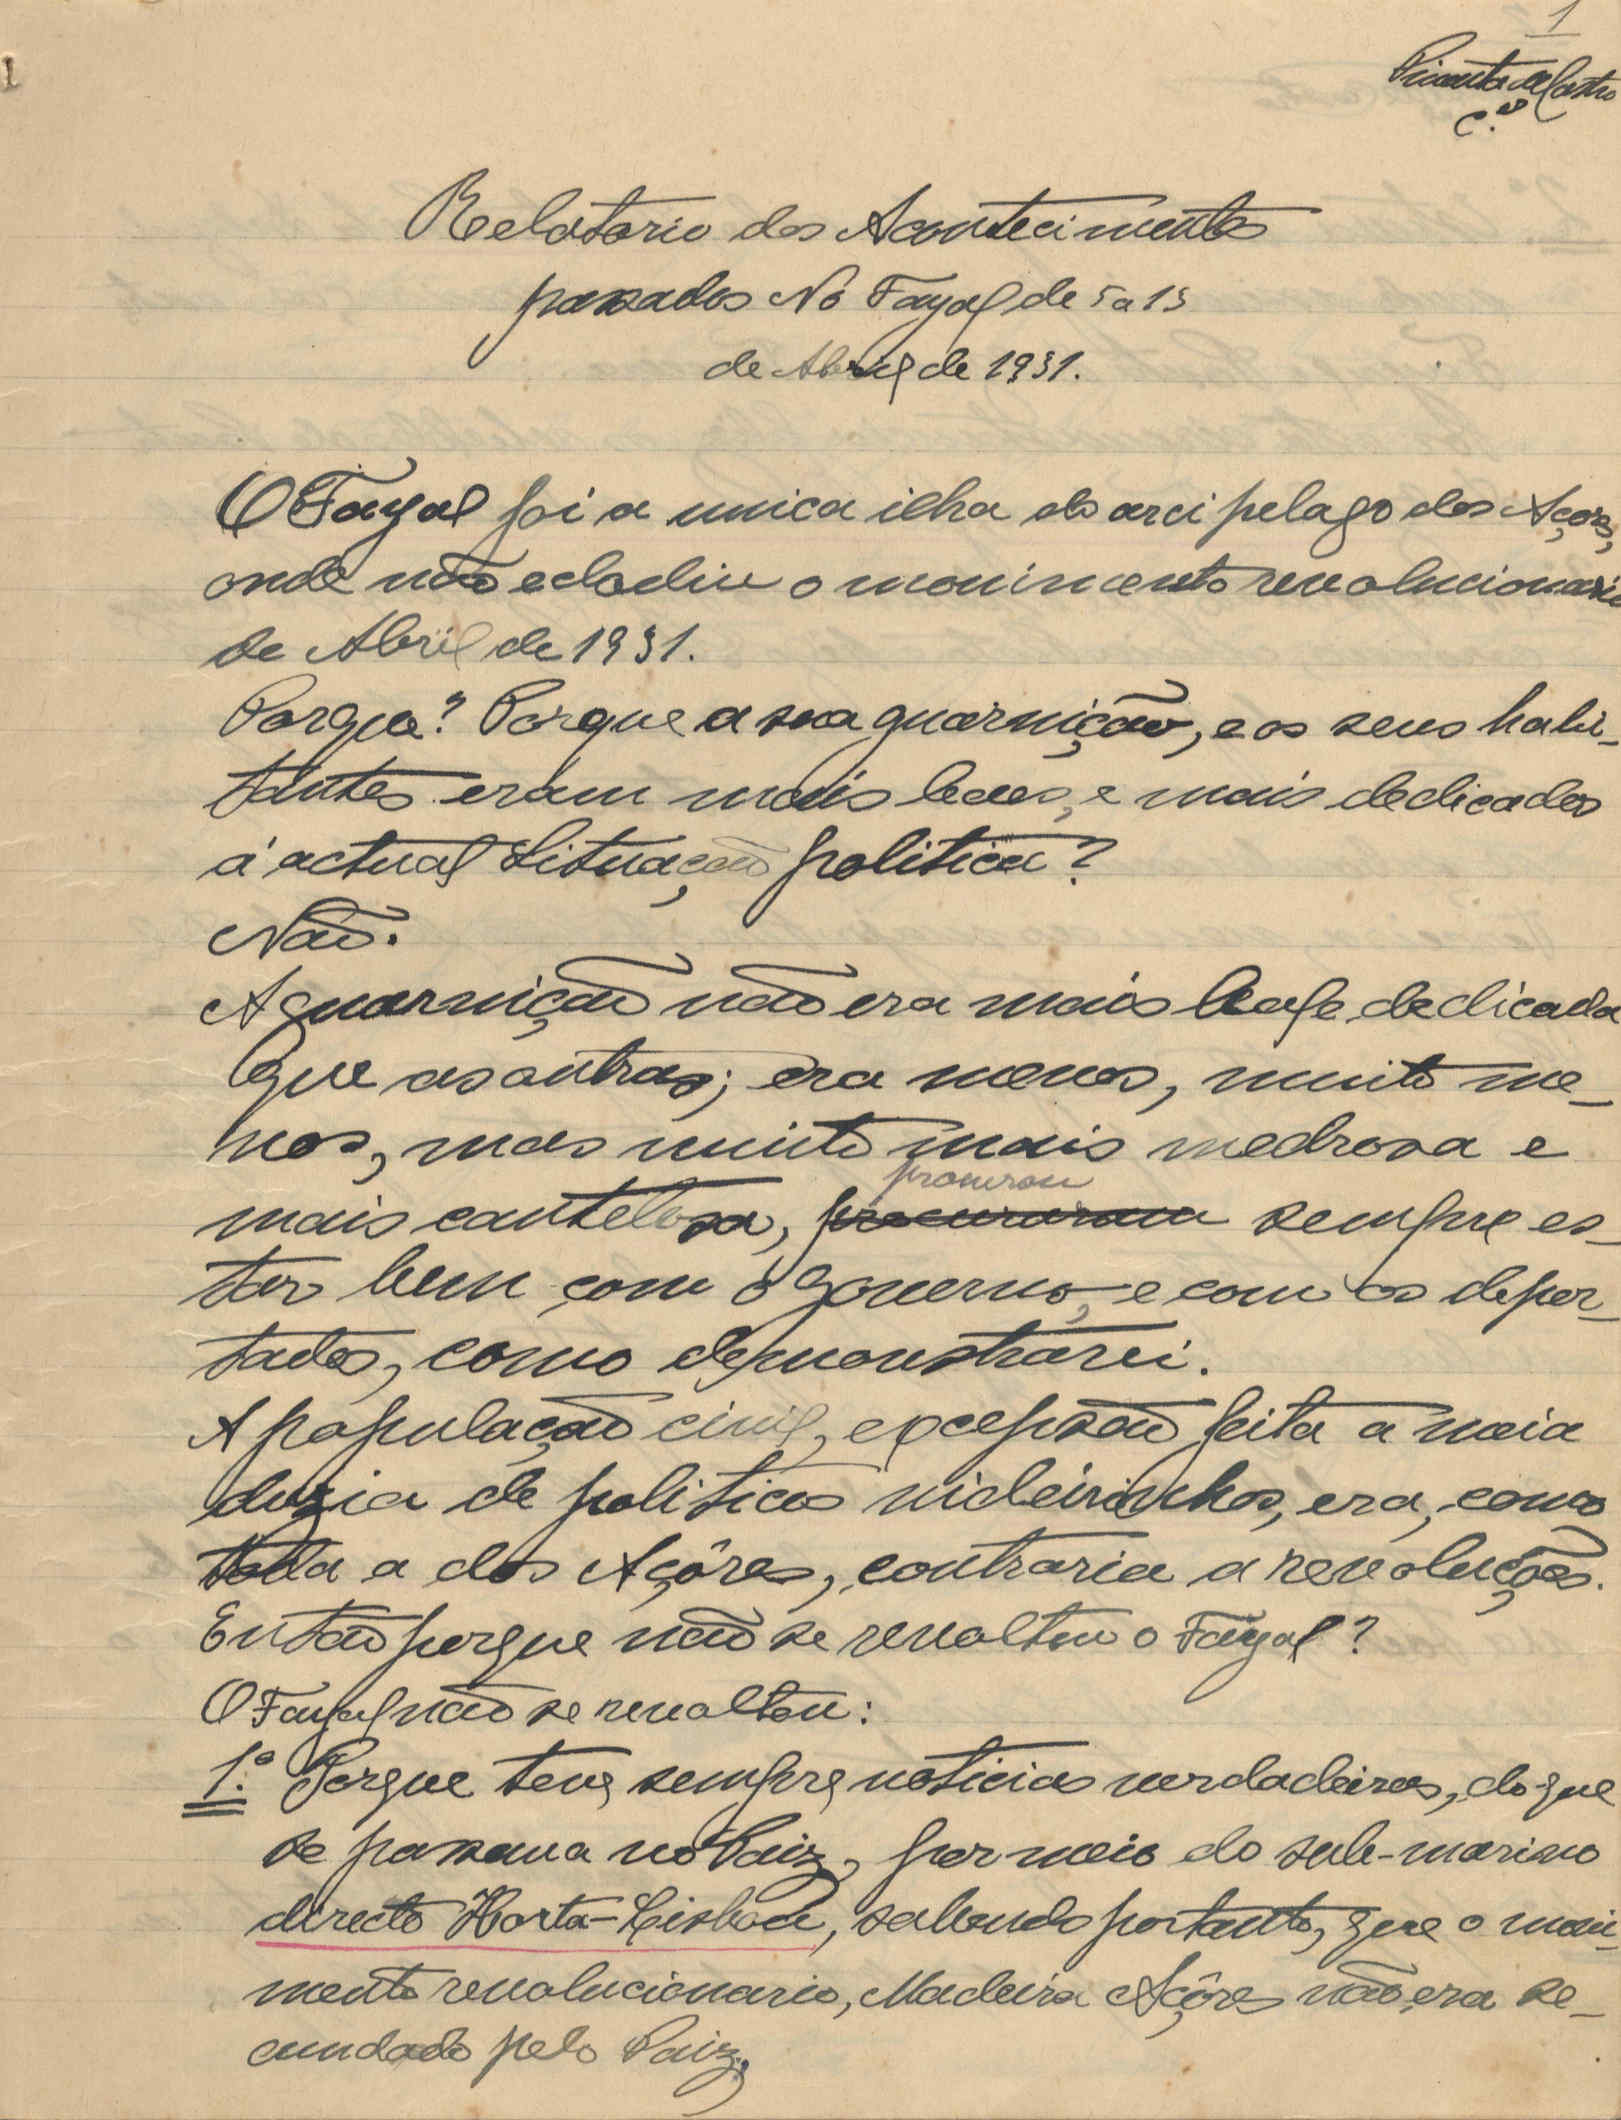 1
Pimenta de Castro
C.el
Relatorio dos Acontecimentos
passados No Fayal de 5 a 15
de Abril de 1931.
O Fayal foi a unica ilha do arcipelago dos Açores,
onde não eclodiu o movimento revolucionario
de Abril de 1931.
Porque? Porque a sua guarnição, e os seus habi-
tantes eram mais leaes, e mais dedicados
á actual situação politica?
Não.
A guarnição não era mais leal e dedicada
que as outras; era menos, muito me-
nos, mas muito mais medrosa e
procurou
mais cautelosa, procuraram sempre es-
tar bem com o governo, e com os depor-
tados, como demonstrarei.
A população civil, excepsão feita a meia
duzia de politicos videirinhos, era, como
toda a dos Açôres, contraria a revoluções.
Então porque não se revoltou o Fayal?
O Fayal não se revoltou:
1.º Porque teve sempre noticias verdadeiras, do que
se passava no Paiz, por meio do sub-marino
directo Horta-Lisboa, sabendo portanto, que o movi-
mento revolucionario, Madeira Açôres não era se-
cundado pelo Paiz;